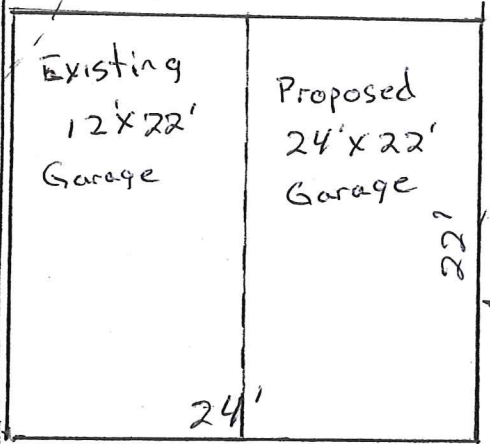 Existing
12'x22'
Garage
Proposed
24'x22'
Garage
22'
24'